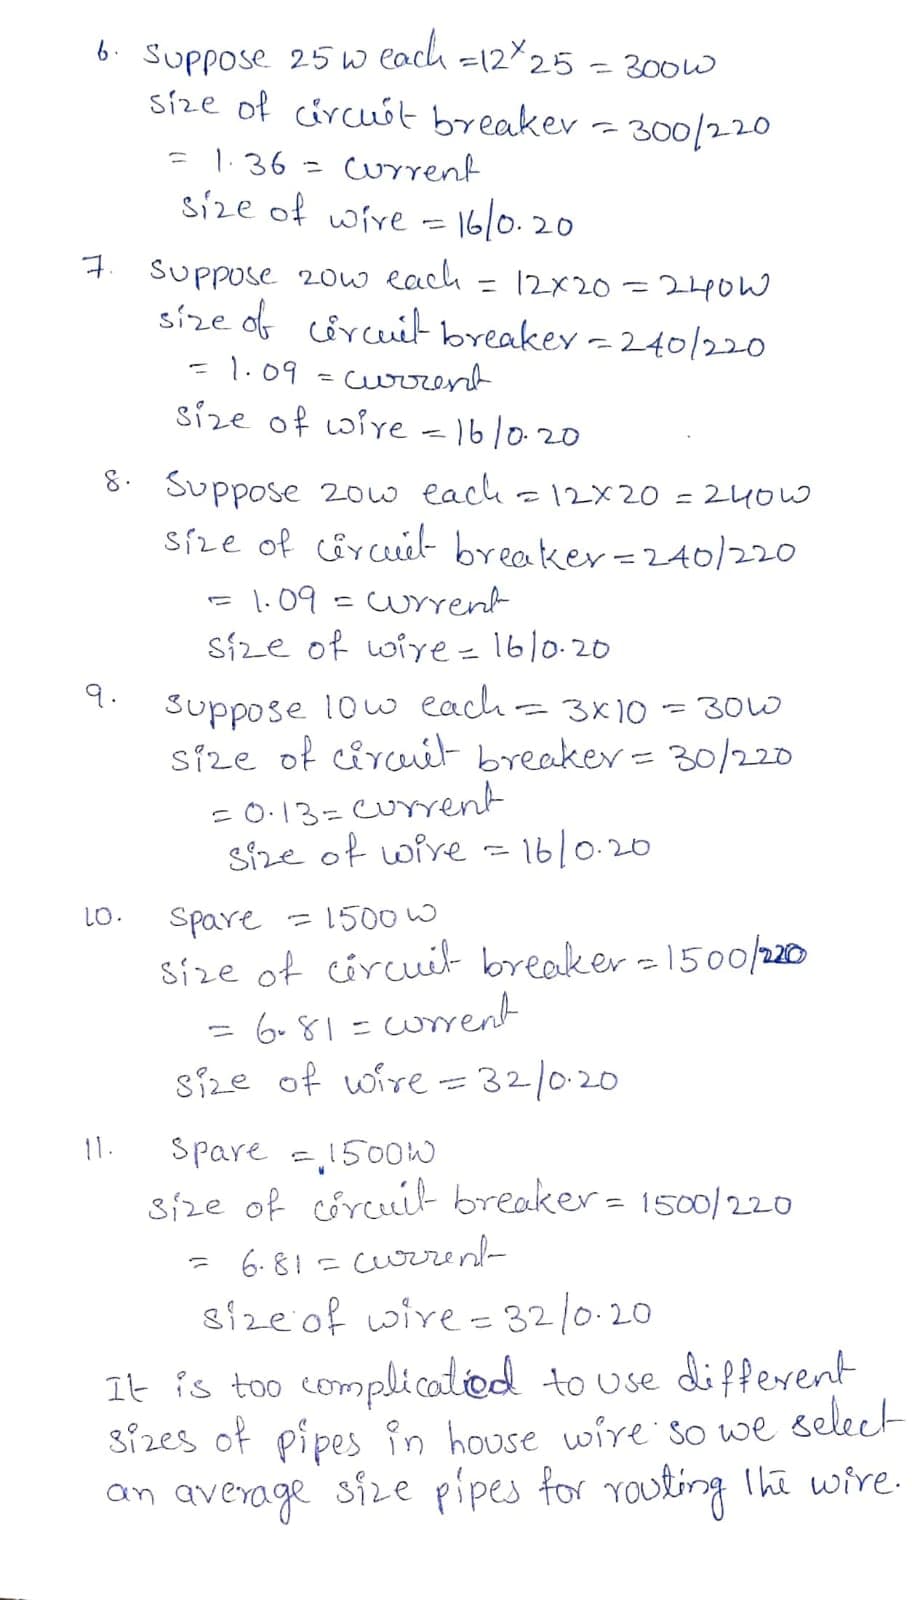 6. Suppose 25 w each = 12 x 25 = 300w
size of circuit breaker = 300/220
= 1.36 = current
size of wire = 16/0.20
7. Suppose 20w each = 12x20 = 240W
size of circuit breaker = 240/220
= 1.09 = current
size of wire = 16/0.20
8. Suppose 20w each = 12x20 = 240w
size of circuit breaker = 240/220
= 1.09 = current
size of wire = 16/0.20
9. suppose 10w each = 3x10 = 30w
size of circuit breaker = 30/220
= 0.13 = current
size of wire = 16/0.20
10. Spare = 1500 w
size of circuit breaker = 1500/220
= 6.81 = current
size of wire = 32/0.20
11. Spare = 1500W
size of circuit breaker = 1500/220
= 6.81 = current
size of wire = 32/0.20
It is too complicatiod to use different
sizes of pipes in house wire so we select
an average size pipes for routing the wire.